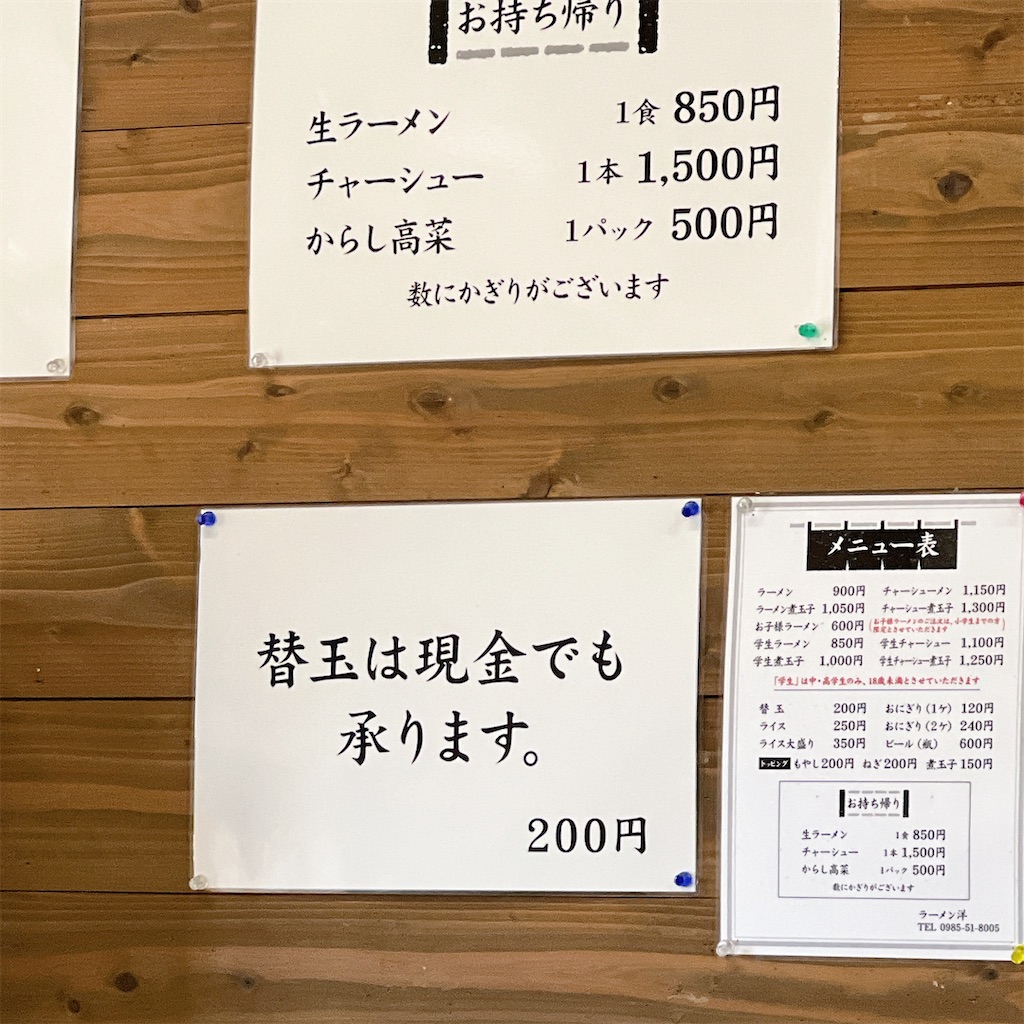 お持ち帰り
生ラーメン 1食 850円
チャーシュー 1本 1,500円
からし高菜 1パック 500円
数にかぎりがございます
替玉は現金でも
承ります。
200円
メニュー表
ラーメン 900円 チャーシューメン 1,150円
ラーメン煮玉子 1,050円 チャーシュー煮玉子 1,300円
お子様ラーメン 600円 (お子様ラーメンのご注文は、小学生までの方
限定とさせていただきます)
学生ラーメン 850円 学生チャーシュー 1,100円
学生煮玉子 1,000円 学生チャーシュー煮玉子 1,250円
「学生」は中・高学生のみ、18歳未満とさせていただきます
替玉 200円 おにぎり(1ケ) 120円
ライス 250円 おにぎり(2ケ) 240円
ライス大盛り 350円 ビール(瓶) 600円
トッピング もやし200円 ねぎ200円 煮玉子150円
お持ち帰り
生ラーメン 1食 850円
チャーシュー 1本 1,500円
からし高菜 1パック 500円
数にかぎりがございます
ラーメン洋
TEL 0985-51-8005